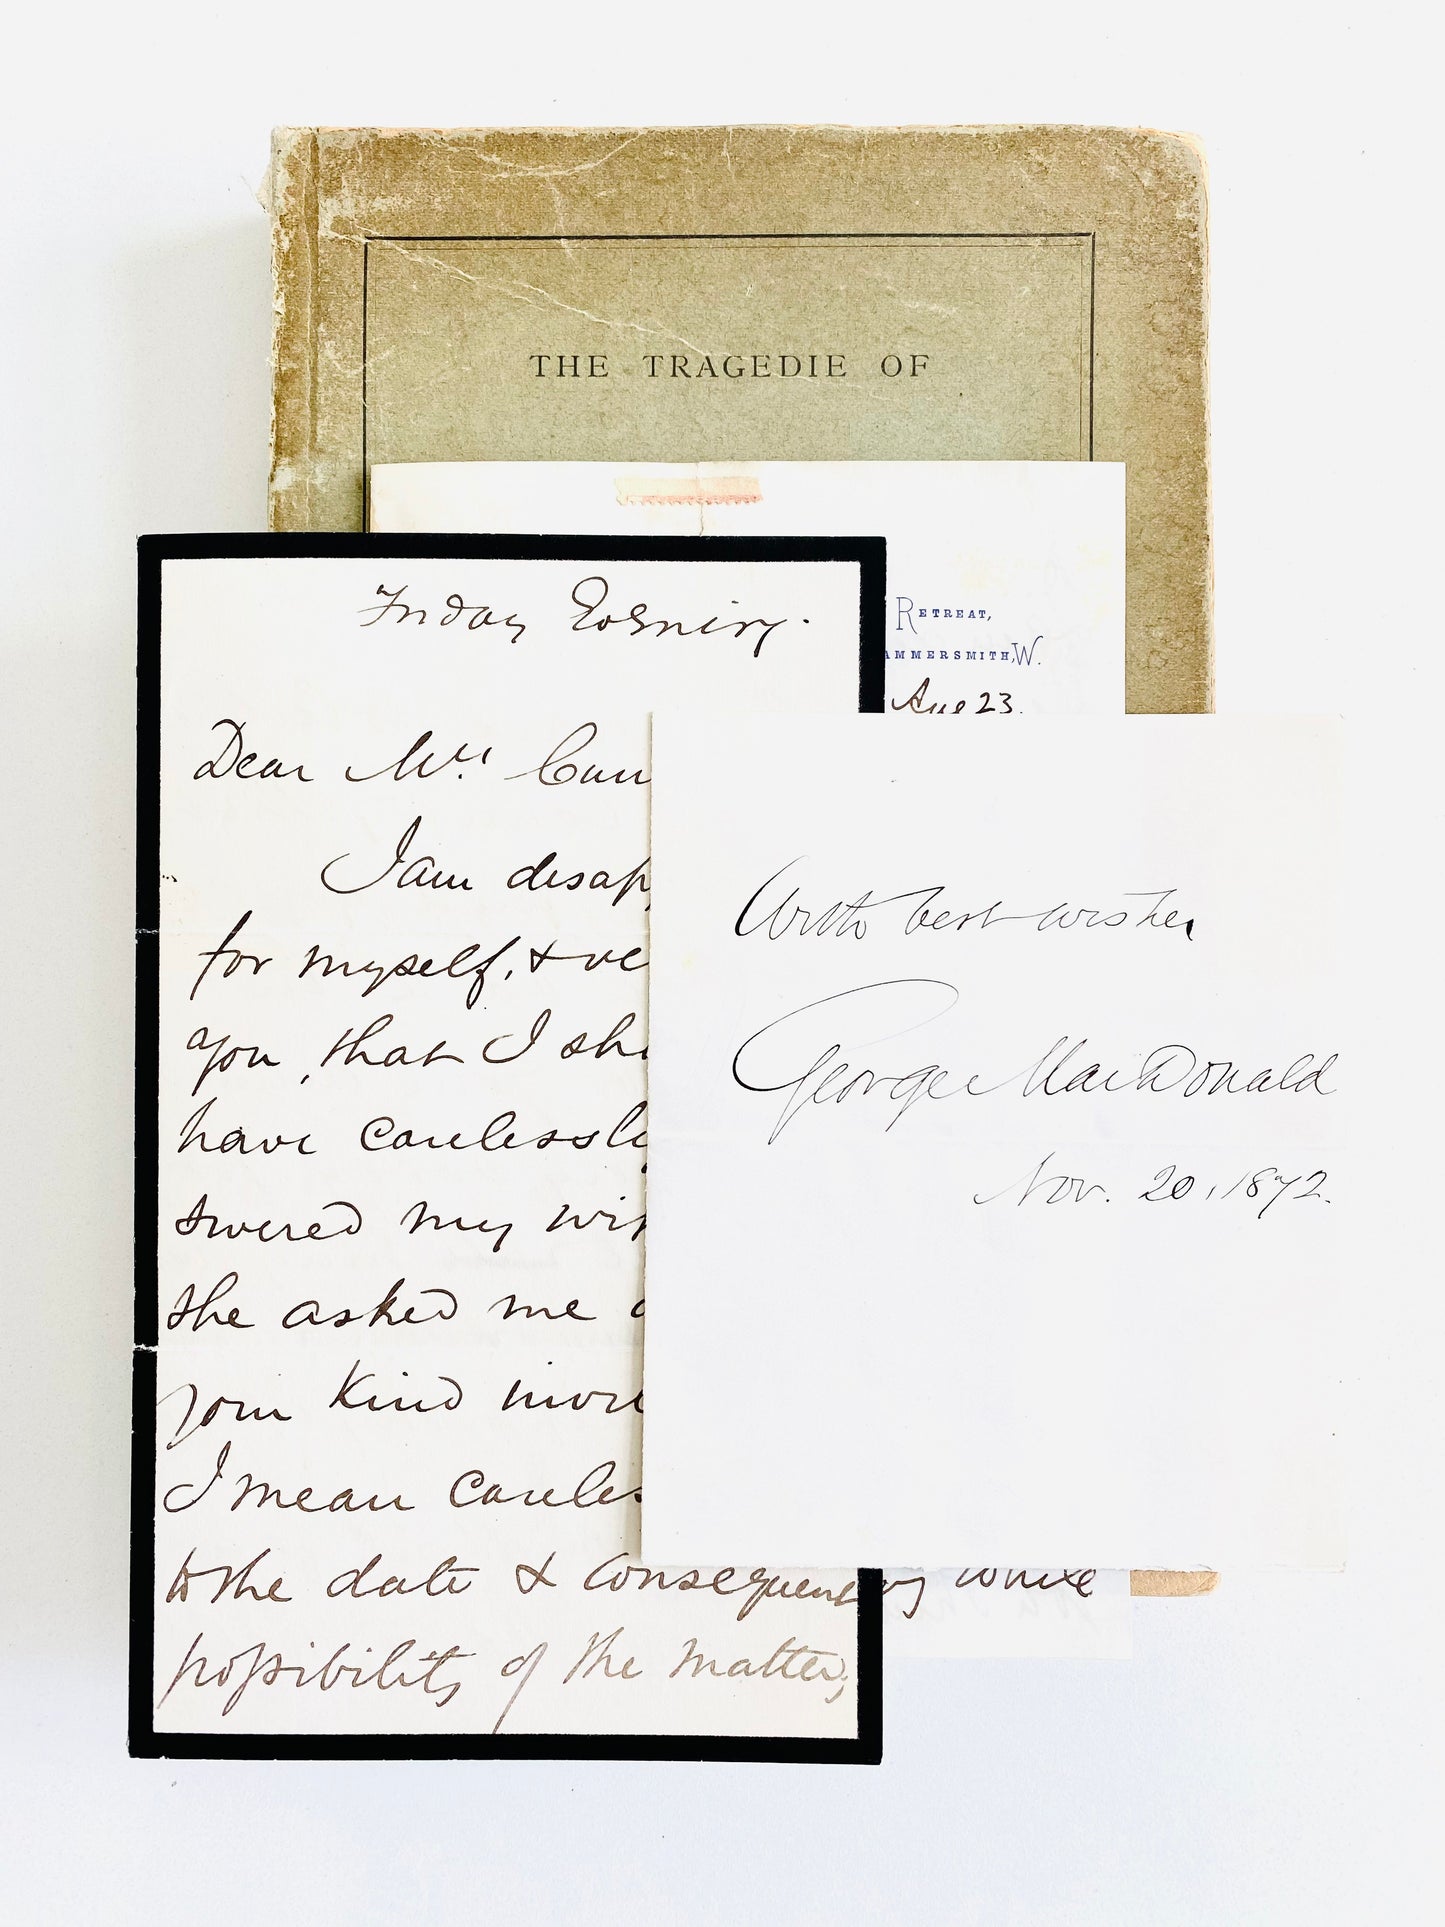 THE TRAGEDIE OF
RETREAT,
AMMERSMITH, W.
Aug 23.
Friday Evening.
Dear Mrs. Cun
I am disap
for myself, & ve
you, that I sh
have carelessly
swered my wif
she asked me a
your kind invi
I mean careles
to the date & consequent
possibility of the matter,
while
With best wishes
George MacDonald
Nov. 20, 1872.